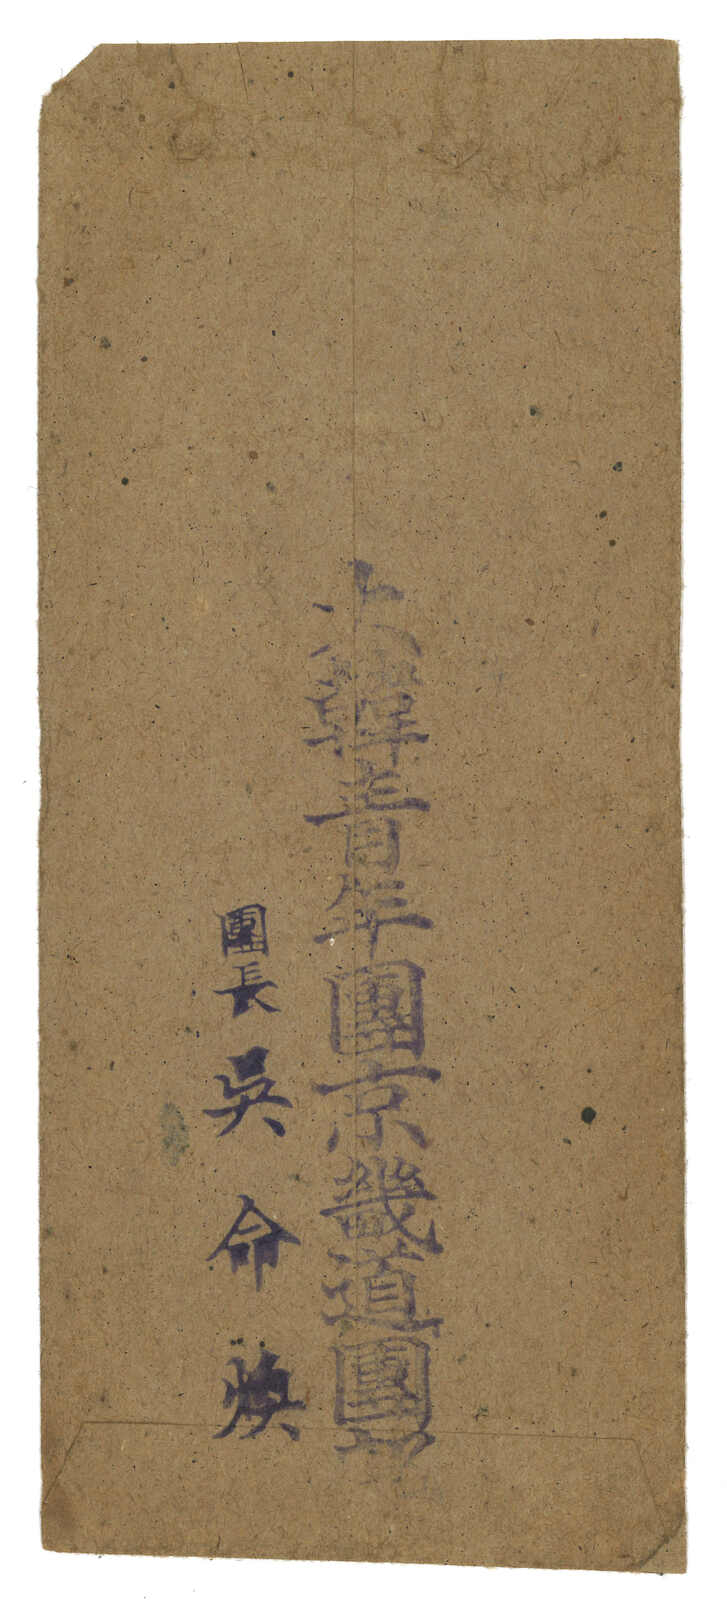 大韓青年團京畿道團
團長 吳命煥